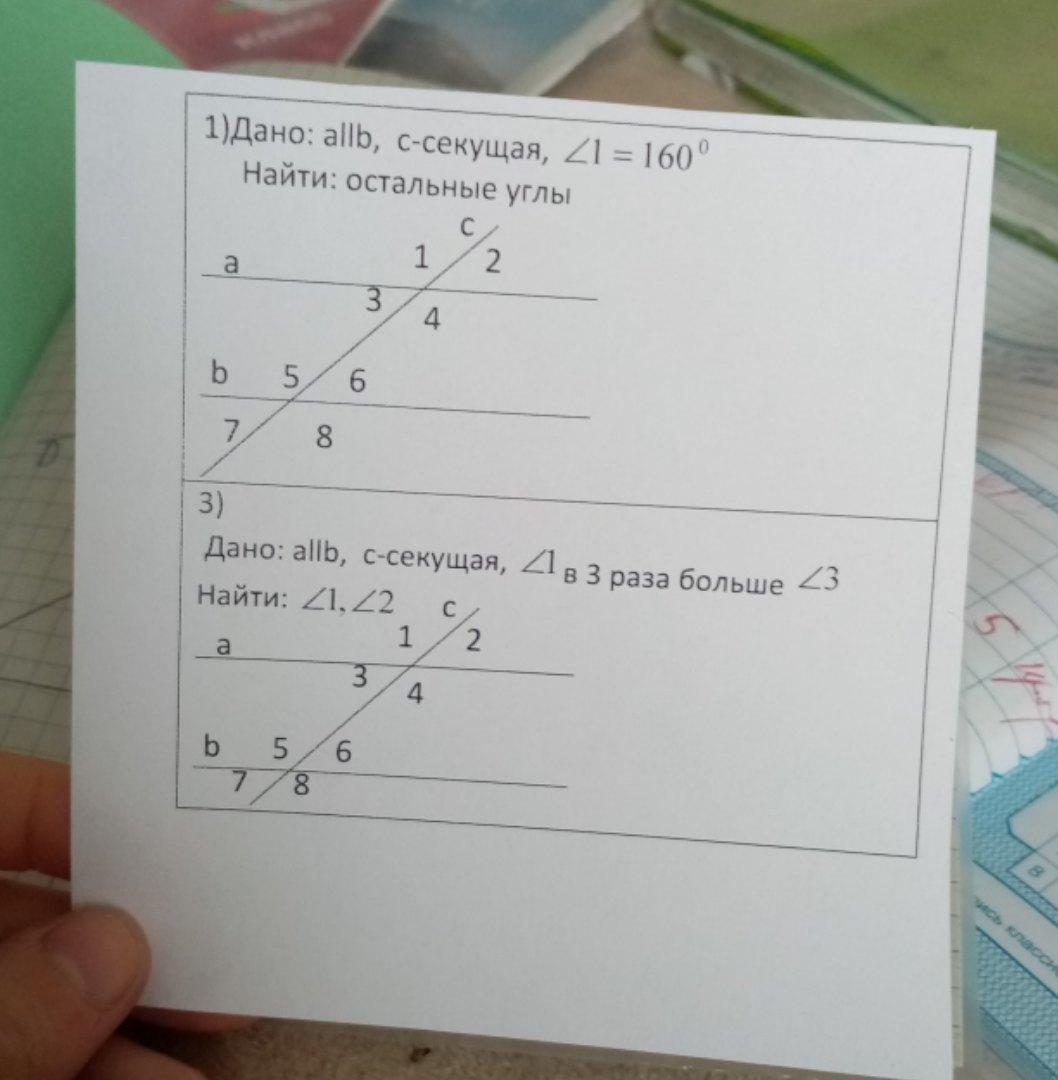 1)Дано: allb, с-секущая, ∠1 = 160⁰
Найти: остальные углы
c
1 2
a
3 4
b 5 6
7 8
3)
Дано: allb, с-секущая, ∠1 в 3 раза больше ∠3
Найти: ∠1,∠2
c
1 2
a
3 4
b 5 6
7 8
5
в